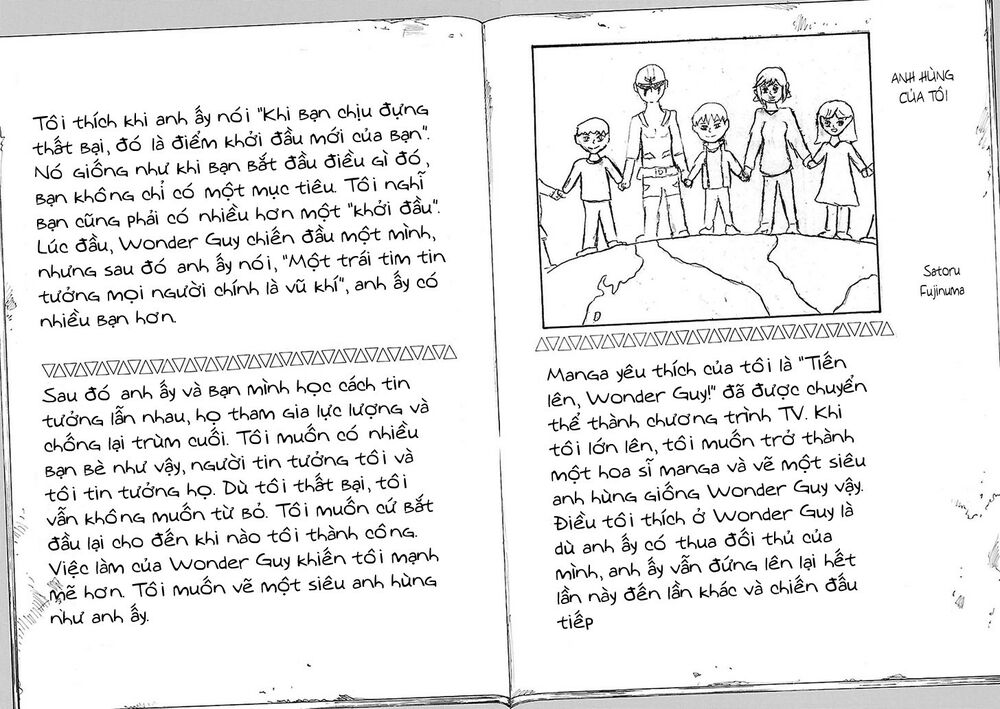 ANH HÙNG
CỦA TÔI
Satoru
Fujinuma
Manga yêu thích của tôi là "Tiến
lên, Wonder Guy!" đã được chuyển
thể thành chương trình TV. Khi
tôi lớn lên, tôi muốn trở thành
một họa sĩ manga và vẽ một siêu
anh hùng giống Wonder Guy vậy.
Điều tôi thích ở Wonder Guy là
dù anh ấy có thua đối thủ của
mình, anh ấy vẫn đứng lên lại hết
lần này đến lần khác và chiến đấu
tiếp
Tôi thích khi anh ấy nói "Khi bạn chịu đựng
thất bại, đó là điểm khởi đầu mới của bạn".
Nó giống như khi bạn bắt đầu điều gì đó,
bạn không chỉ có một mục tiêu. Tôi nghĩ
bạn cũng phải có nhiều hơn một "khởi đầu".
Lúc đầu, Wonder Guy chiến đấu một mình,
nhưng sau đó anh ấy nói, "Một trái tim tin
tưởng mọi người chính là vũ khí", anh ấy có
nhiều bạn hơn.
Sau đó anh ấy và bạn mình học cách tin
tưởng lẫn nhau, họ tham gia lực lượng và
chống lại trùm cuối. Tôi muốn có nhiều
bạn bè như vậy, người tin tưởng tôi và
tôi tin tưởng họ. Dù tôi thất bại, tôi
vẫn không muốn từ bỏ. Tôi muốn cứ bắt
đầu lại cho đến khi nào tôi thành công.
Việc làm của Wonder Guy khiến tôi mạnh
mẽ hơn. Tôi muốn vẽ một siêu anh hùng
như anh ấy.